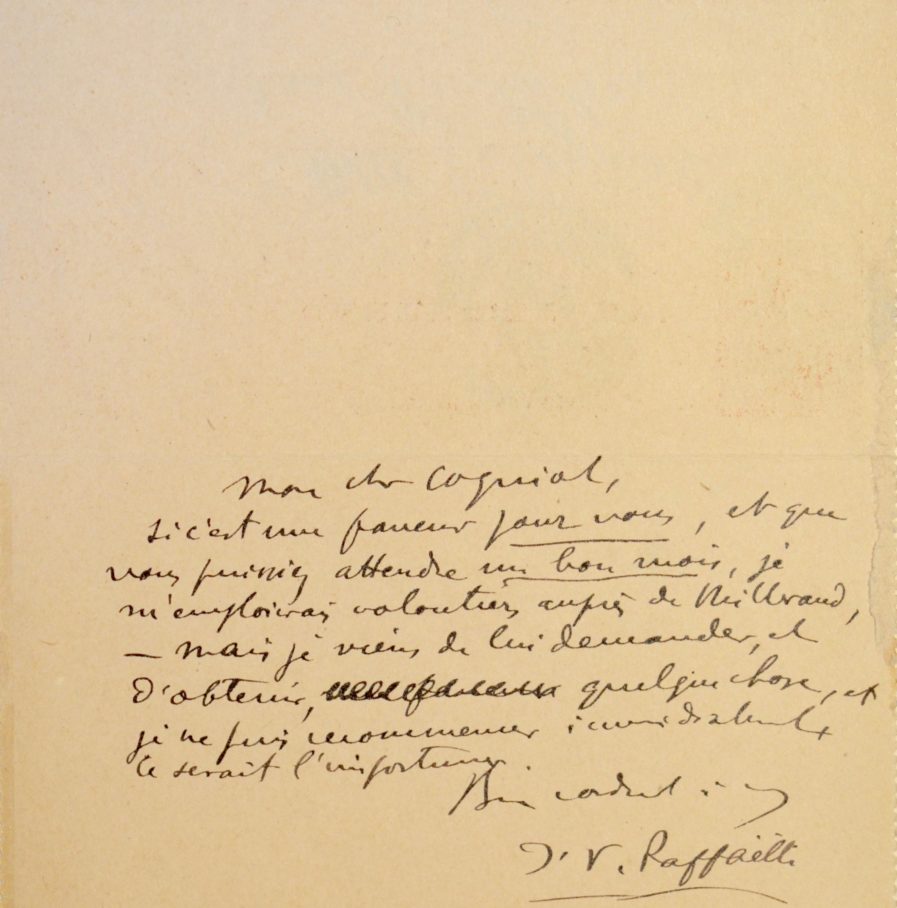 Mon cher Cogniat,
si c'est une faveur pour vous, et que
vous puissiez attendre un bon mois, je
m'emploierai volontiers auprès de Millerand,
– mais je viens de lui demander, et
d'obtenir, quelque chose, et
je ne puis recommencer immédiatement,
ce serait l'importuner.
Bien cordial à v
J. F. Raffaëlli